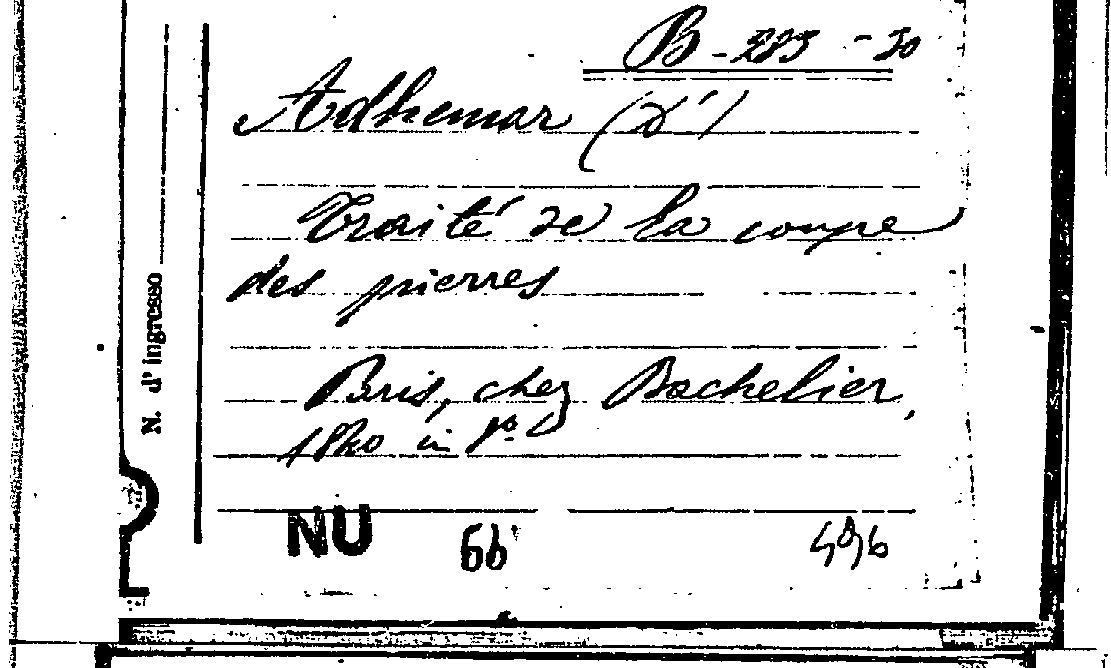 B - 285 - 30
Adhemar (d')
Traité de la coupe
des pierres
Paris, chez Bachelier,
1840 in 8º
NU 66 496
N. d'ingresso